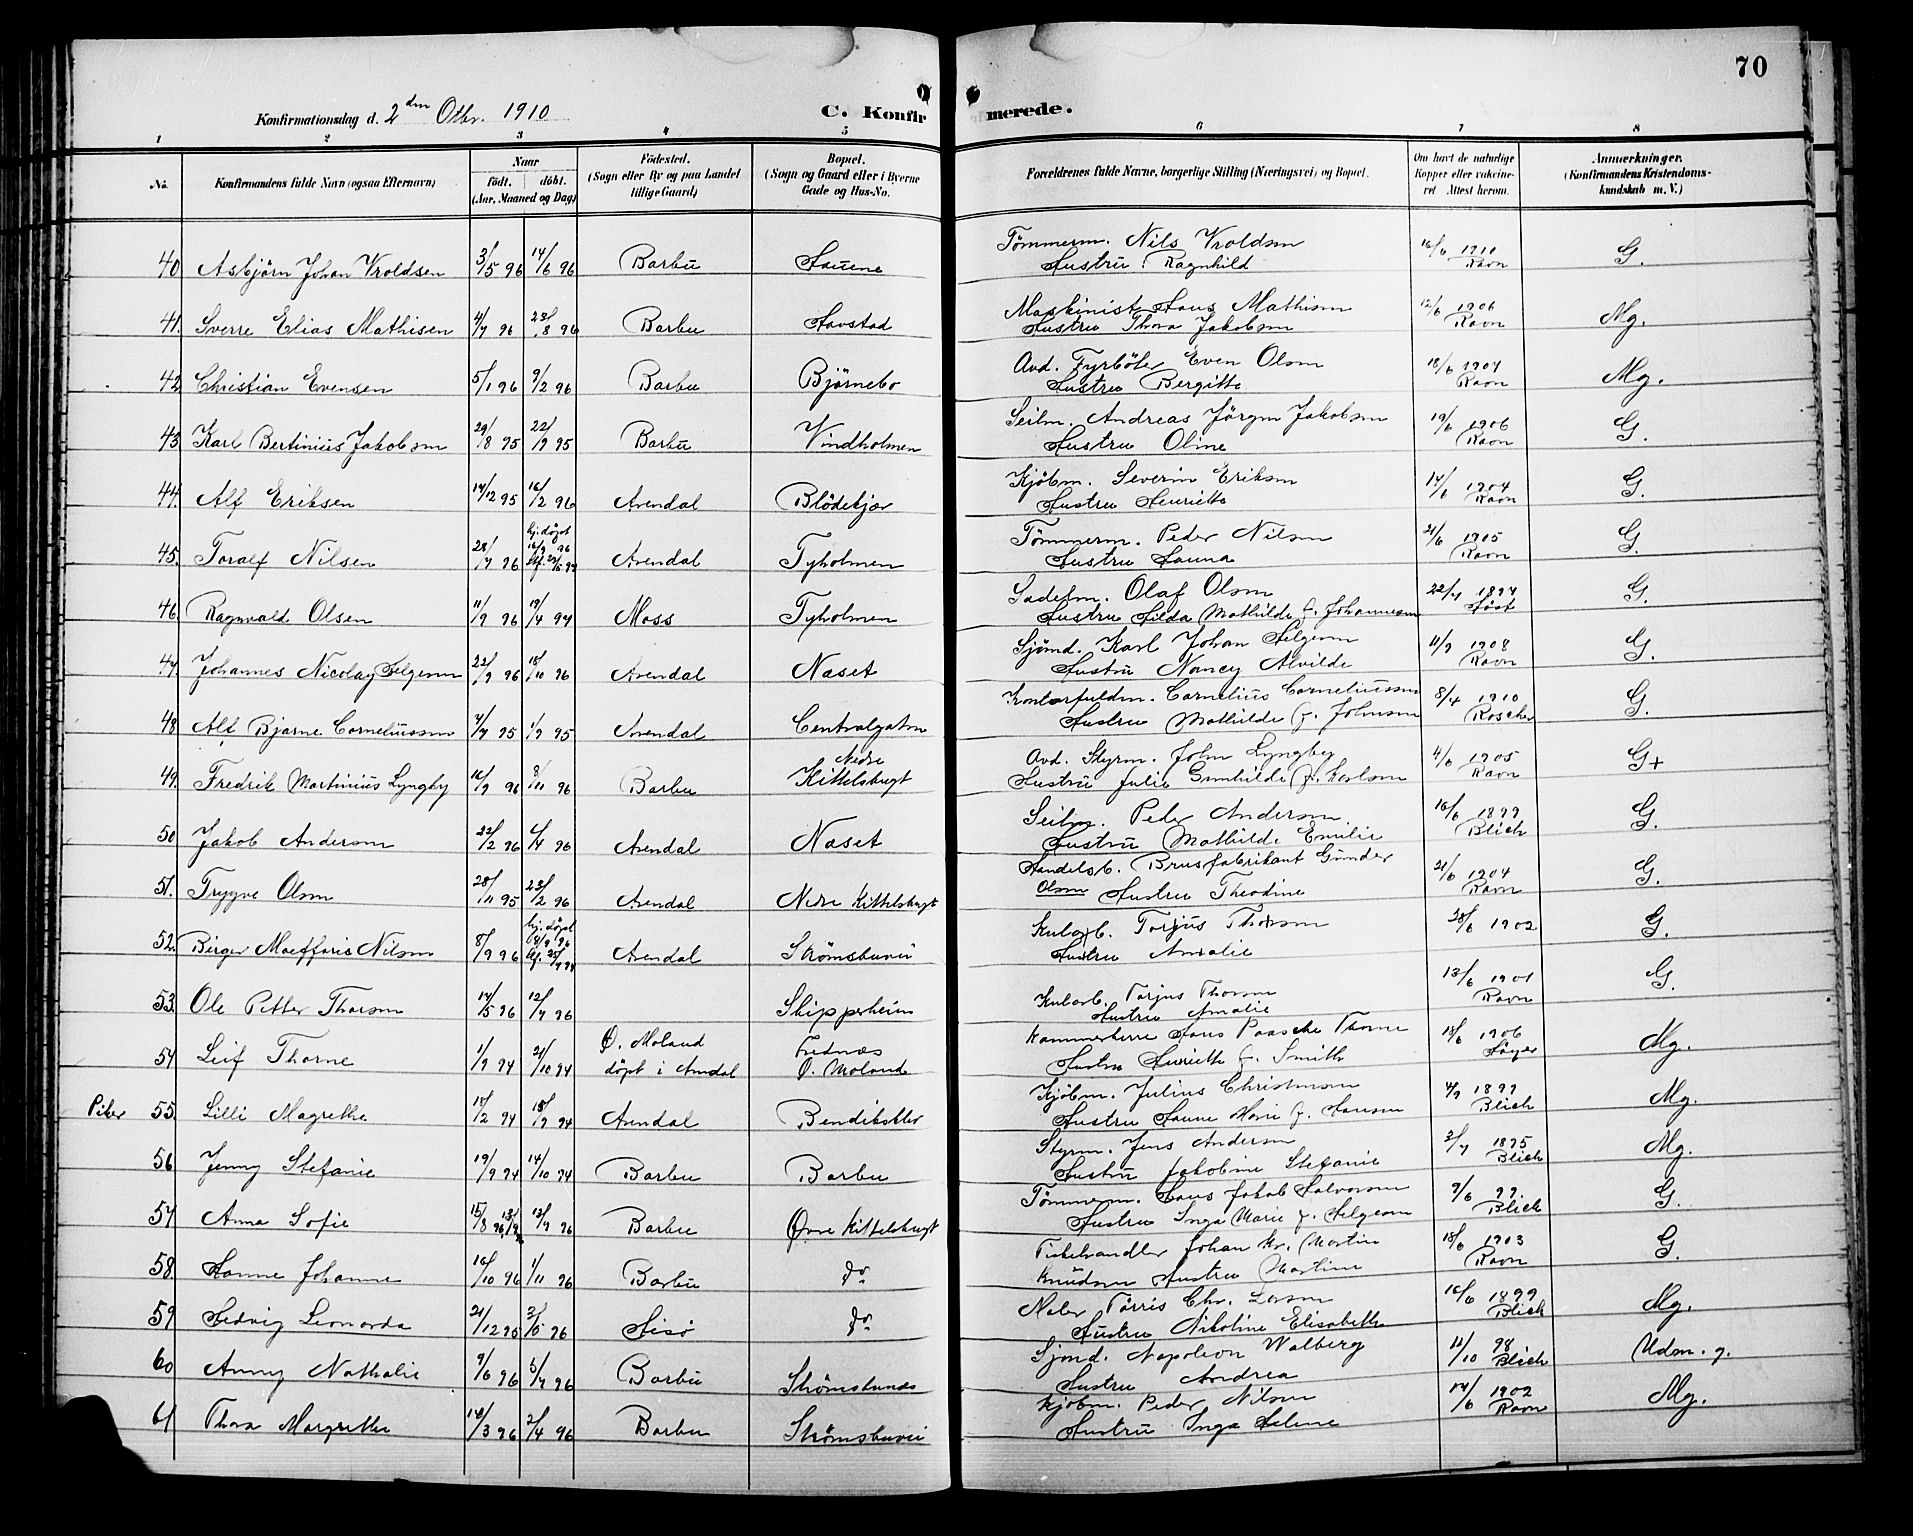 70
Konfirmationsdag d. 2den Otbr. 1910
C. Konfirmerede.
1 2 3 4 5 6 7 8
No.
Konfirmandens fulde Navn (ogsaa Efternavn)
Naar født. døbt. (Aar, Maaned og Dag)
Fødested. (Sogn eller By og paa Landet tillige Gaard)
Bopæl. (Sogn og Gaard eller i Byerne Gade og Hus-No.
Forældrenes fulde Navne, borgerlige Stilling (Næringsvei) og Bopæl.
Om havt de naturlige Kopper eller vakcineret Attest herom.
Anmærkninger. (Konfirmandens Kristendomskundskab m. V.)
40 Asbjörn Johan Vroldsen 3/5 96 14/6 96 Barbu Hauene Tömmerm. Nils Vroldsen Hustru: Ragnhild 16/6 1910 Ravn G.
41. Sverre Elias Mathisen 4/7 96 23/8 96 Barbu Havstad Maskinist Hans Mathisen Hustru Thora Jakobsen 12/6 1906 Ravn Mg.
42 Christian Evensen 5/1 96 9/2 96 Barbu Björnebo Avd. Fyrböter Even Olsen Hustru Bergitte 18/6 1904 Ravn Mg.
43 Karl Bertinius Jakobsen 29/8 95 22/9 95 Barbu Vindholmen Seilm. Andreas Jörgen Jakobsen Hustru Oline 19/6 1906 Ravn G.
44. Alf Eriksen 14/12 95 16/2 96 Arendal Blödekjær Kjöbm. Severin Eriksen Hustru Henriette 14/6 1904 Ravn G.
45. Toralf Nilsen 28/7 96 hj. döpt 16/9 96 Arendal Tyholmen Tömmerm. Peder Nilsen Hustru Hanna 21/6 1905 Ravn G.
46. Ragnvald Olsen 11/9 96 19/4 97 Moss Tyholmen Sadelm. Olaf Olsen Hustru Hilda Mathilde f. Johannesen 22/4 1897 Höst G.
47 Johannes Nicolay Helgesen 22/9 96 18/10 96 Arendal Næset Sjömd. Karl Johan Helgesen Hustru Nancy Alvilde 11/9 1908 Ravn G.
48 Alf Bjarne Corneliussen 7/7 95 1/9 95 Arendal Centralgaten Kontorfuldm. Cornelius Corneliussen Hustru Mathilde f. Johnsen 8/4 1910 Roscher G.
49. Fredrik Martinius Lyngby 16/9 96 8/11 96 Barbu Nedre Kittelsbugt Avd. Styrm. John Lyngby Hustru Julie Gunhilde f. Karlsen 4/6 1905 Ravn G+
50 Jakob Andersen 22/2 96 6/4 96 Arendal Næset Seilm. Peter Andersen. Hustru Mathilde Emilie 16/6 1899 Blich G.
51. Trygve Olsen 28/11 95 23/2 96 Arendal Nedre Kittelsbugt Handelsb. Brusfabrikant Gunder Olsen Hustru Theodine 21/6 1904 Ravn G.
52. Birger Nilsen 8/9 96 hj. döpt 18/9 96 Arendal Strømsbuvei Kularb. Torjus Thorsen Hustru Amalie 28/6 1902 G.
53. Ole Petter Thorsen 14/5 96 12/7 96 Skipperheim Kularb. Torjus Thorsen Hustru Amalie 13/6 1901 Ravn G.
54 Leif Thorne 1/9 94 21/10 94 Ø. Moland döpt i Arendal Frednæs Ø. Moland Kammerherre Hans Paasche Thorne Hustru Henriette f. Smith 18/6 1906 Høyer Mg.
Piker 55. Lilli Magrethe 15/2 94 18/9 94 Arendal Bendiksklev Kjöbm. Julius Christensen Hustru Hanne Marie f. Hansen 4/9 1899 Blich Mg.
56 Jenny Stefanie 19/9 94 14/10 94 Barbu Barbu Styrm. Jens Andersen Hustru Jakobine Stefanie 3/7 1895 Blich Mg.
57 Anna Sofie 15/8 96 13/9 96 Barbu Øvre Kittelsbugt Tömmerm. Hans Jakob Halvorsen Hustru Inga Marie f. Helgesen 9/6 99. Blich G.
58. Hanne Johanne 16/10 96 1/11 96 Barbu do Fiskehandler Johan Kr. Martin Knudsen Hustru Martine 18/6 1903 Ravn G.
59 Hedvig Leonarda 21/12 95 3/5 96 Hisö do Maler Törris Chr. Larsen Hustru Nikoline Elisabeth 16/6 1899 Blich Mg.
60 Anny Nathalie 9/6 96 5/7 96 Barbu Strømsbunæs Sjömd. Napoleon Walberg Hustru Andrea 12/10 98 Blich Udm. g.
61 Thora Margrethe 14/3 96 2/4 96 Barbu Strømsbuvei Kjöbm. Peder Nilsen Hustru Inga Helene 14/6 1902 Ravn Mg.